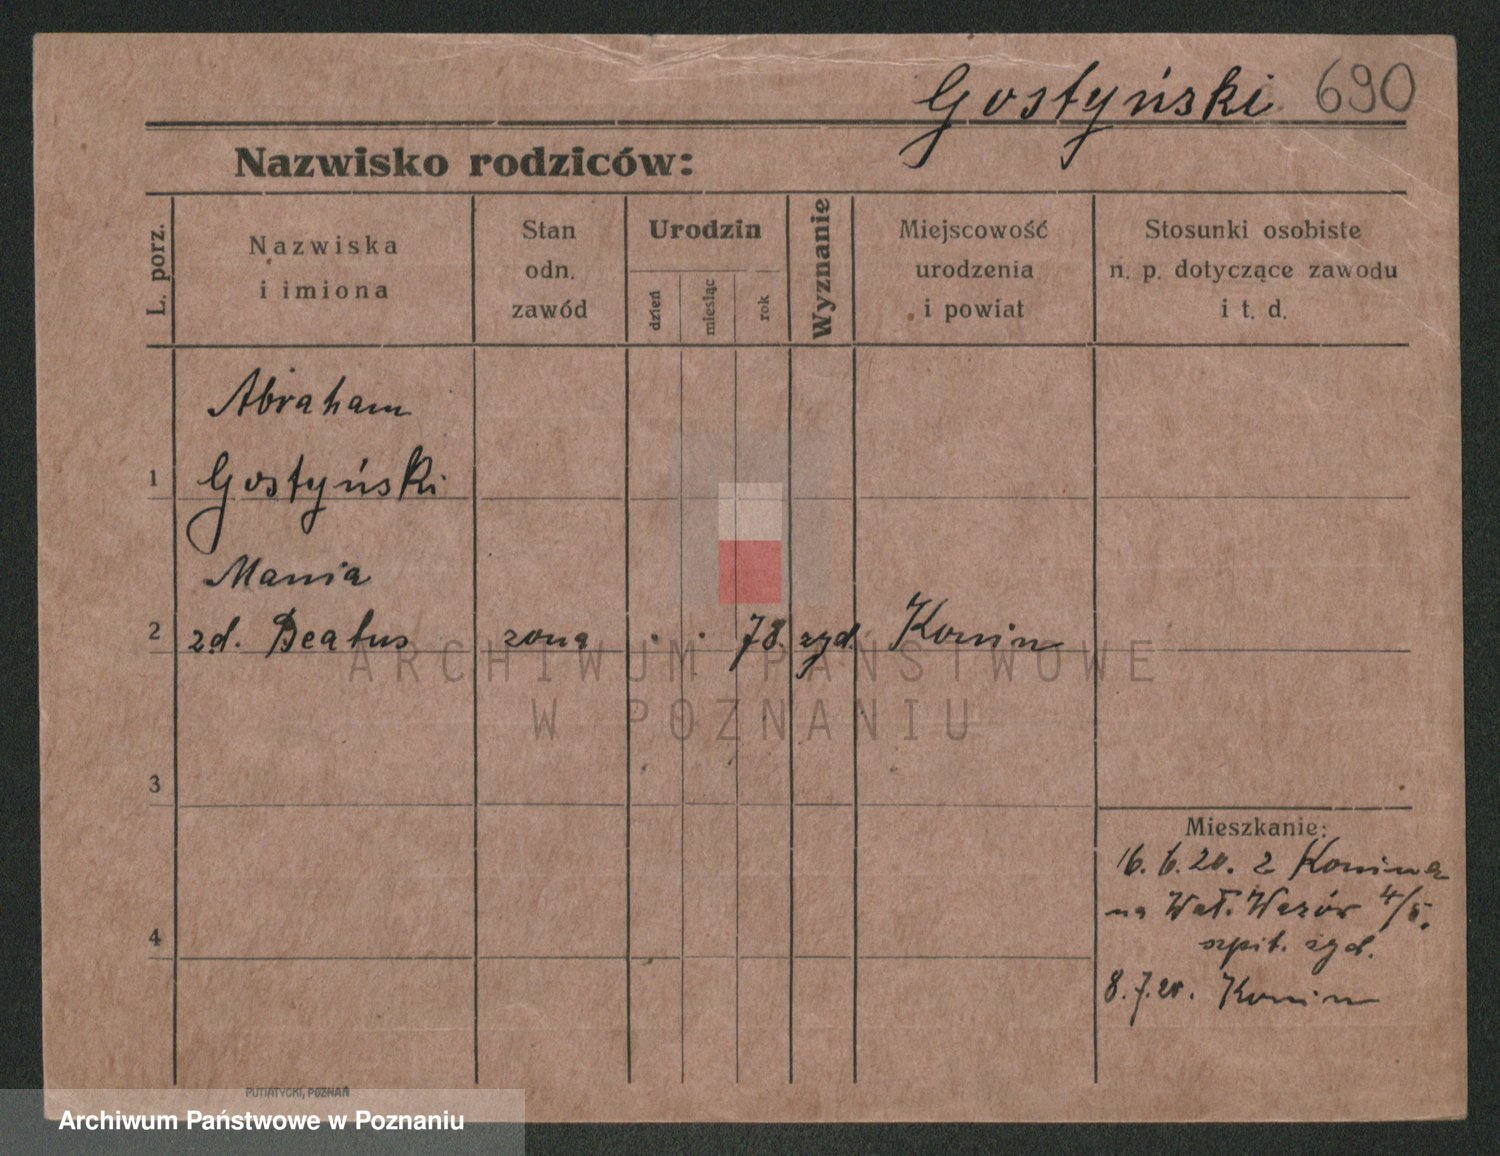 Gostyński 690
Nazwisko rodziców:
L. porz.
Nazwiska
i imiona
Stan
odn.
zawód
Urodzin
dzień
miesiąc
rok
Wyznanie
Miejscowość
urodzenia
i powiat
Stosunki osobiste
n. p. dotyczące zawodu
i t. d.
Abraham
1 Gostyński
Mania
2 zd. Beatus żona . . 78. żyd. Konin
ARCHIWUM PAŃSTWOWE
W POZNANIU
3
Mieszkanie:
16. 6. 20. z Konina
na Wał. Wazów 4/5.
szpit. żyd.
4
8. 7. 20. Konin
PUTIATYCKI, POZNAŃ
Archiwum Państwowe w Poznaniu